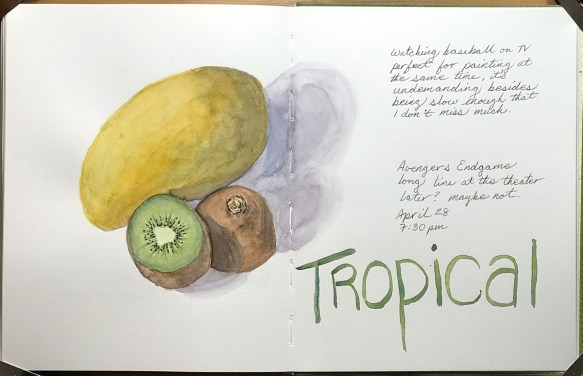 Watching baseball on TV
perfect for painting at
the same time, it's
undemanding besides
being slow enough that
I don't miss much.
Avengers Endgame
long line at the theater
later? maybe not.
April 28
7:30 pm
TROPICAL